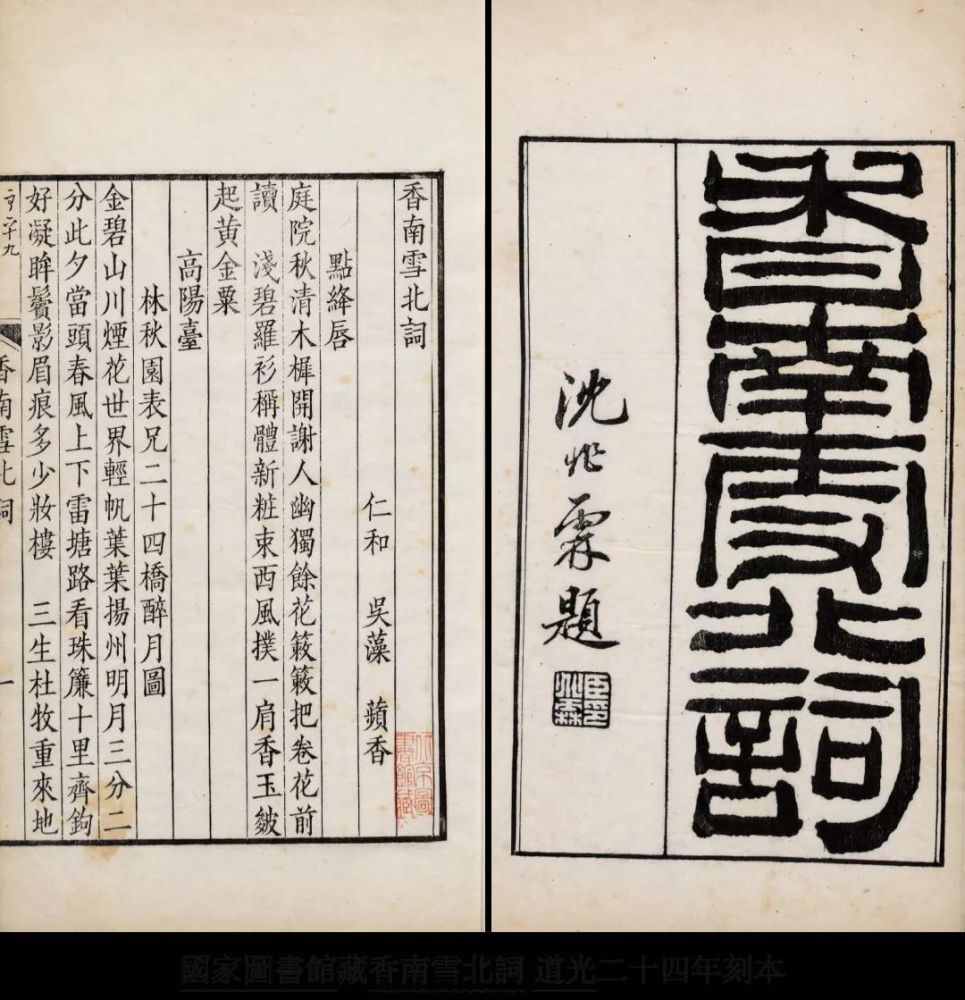 香南雪北詞
沈兆霖題
臣兆霖印
香南雪北詞
仁和 吳藻 蘋香
點絳唇
庭院秋清木樨開謝人幽獨餘花簌簌把卷花前
讀 淺碧羅衫稱體新粧束西風撲一肩香玉皴
起黃金粟
高陽臺
林秋園表兄二十四橋醉月圖
金碧山川煙花世界輕帆葉葉揚州明月三分二
分此夕當頭春風上下雷塘路看珠簾十里齊鉤
好凝眸鬢影眉痕多少妝樓 三生杜牧重來地
香南雪北詞
一
國家圖書館藏香南雪北詞 道光二十四年刻本